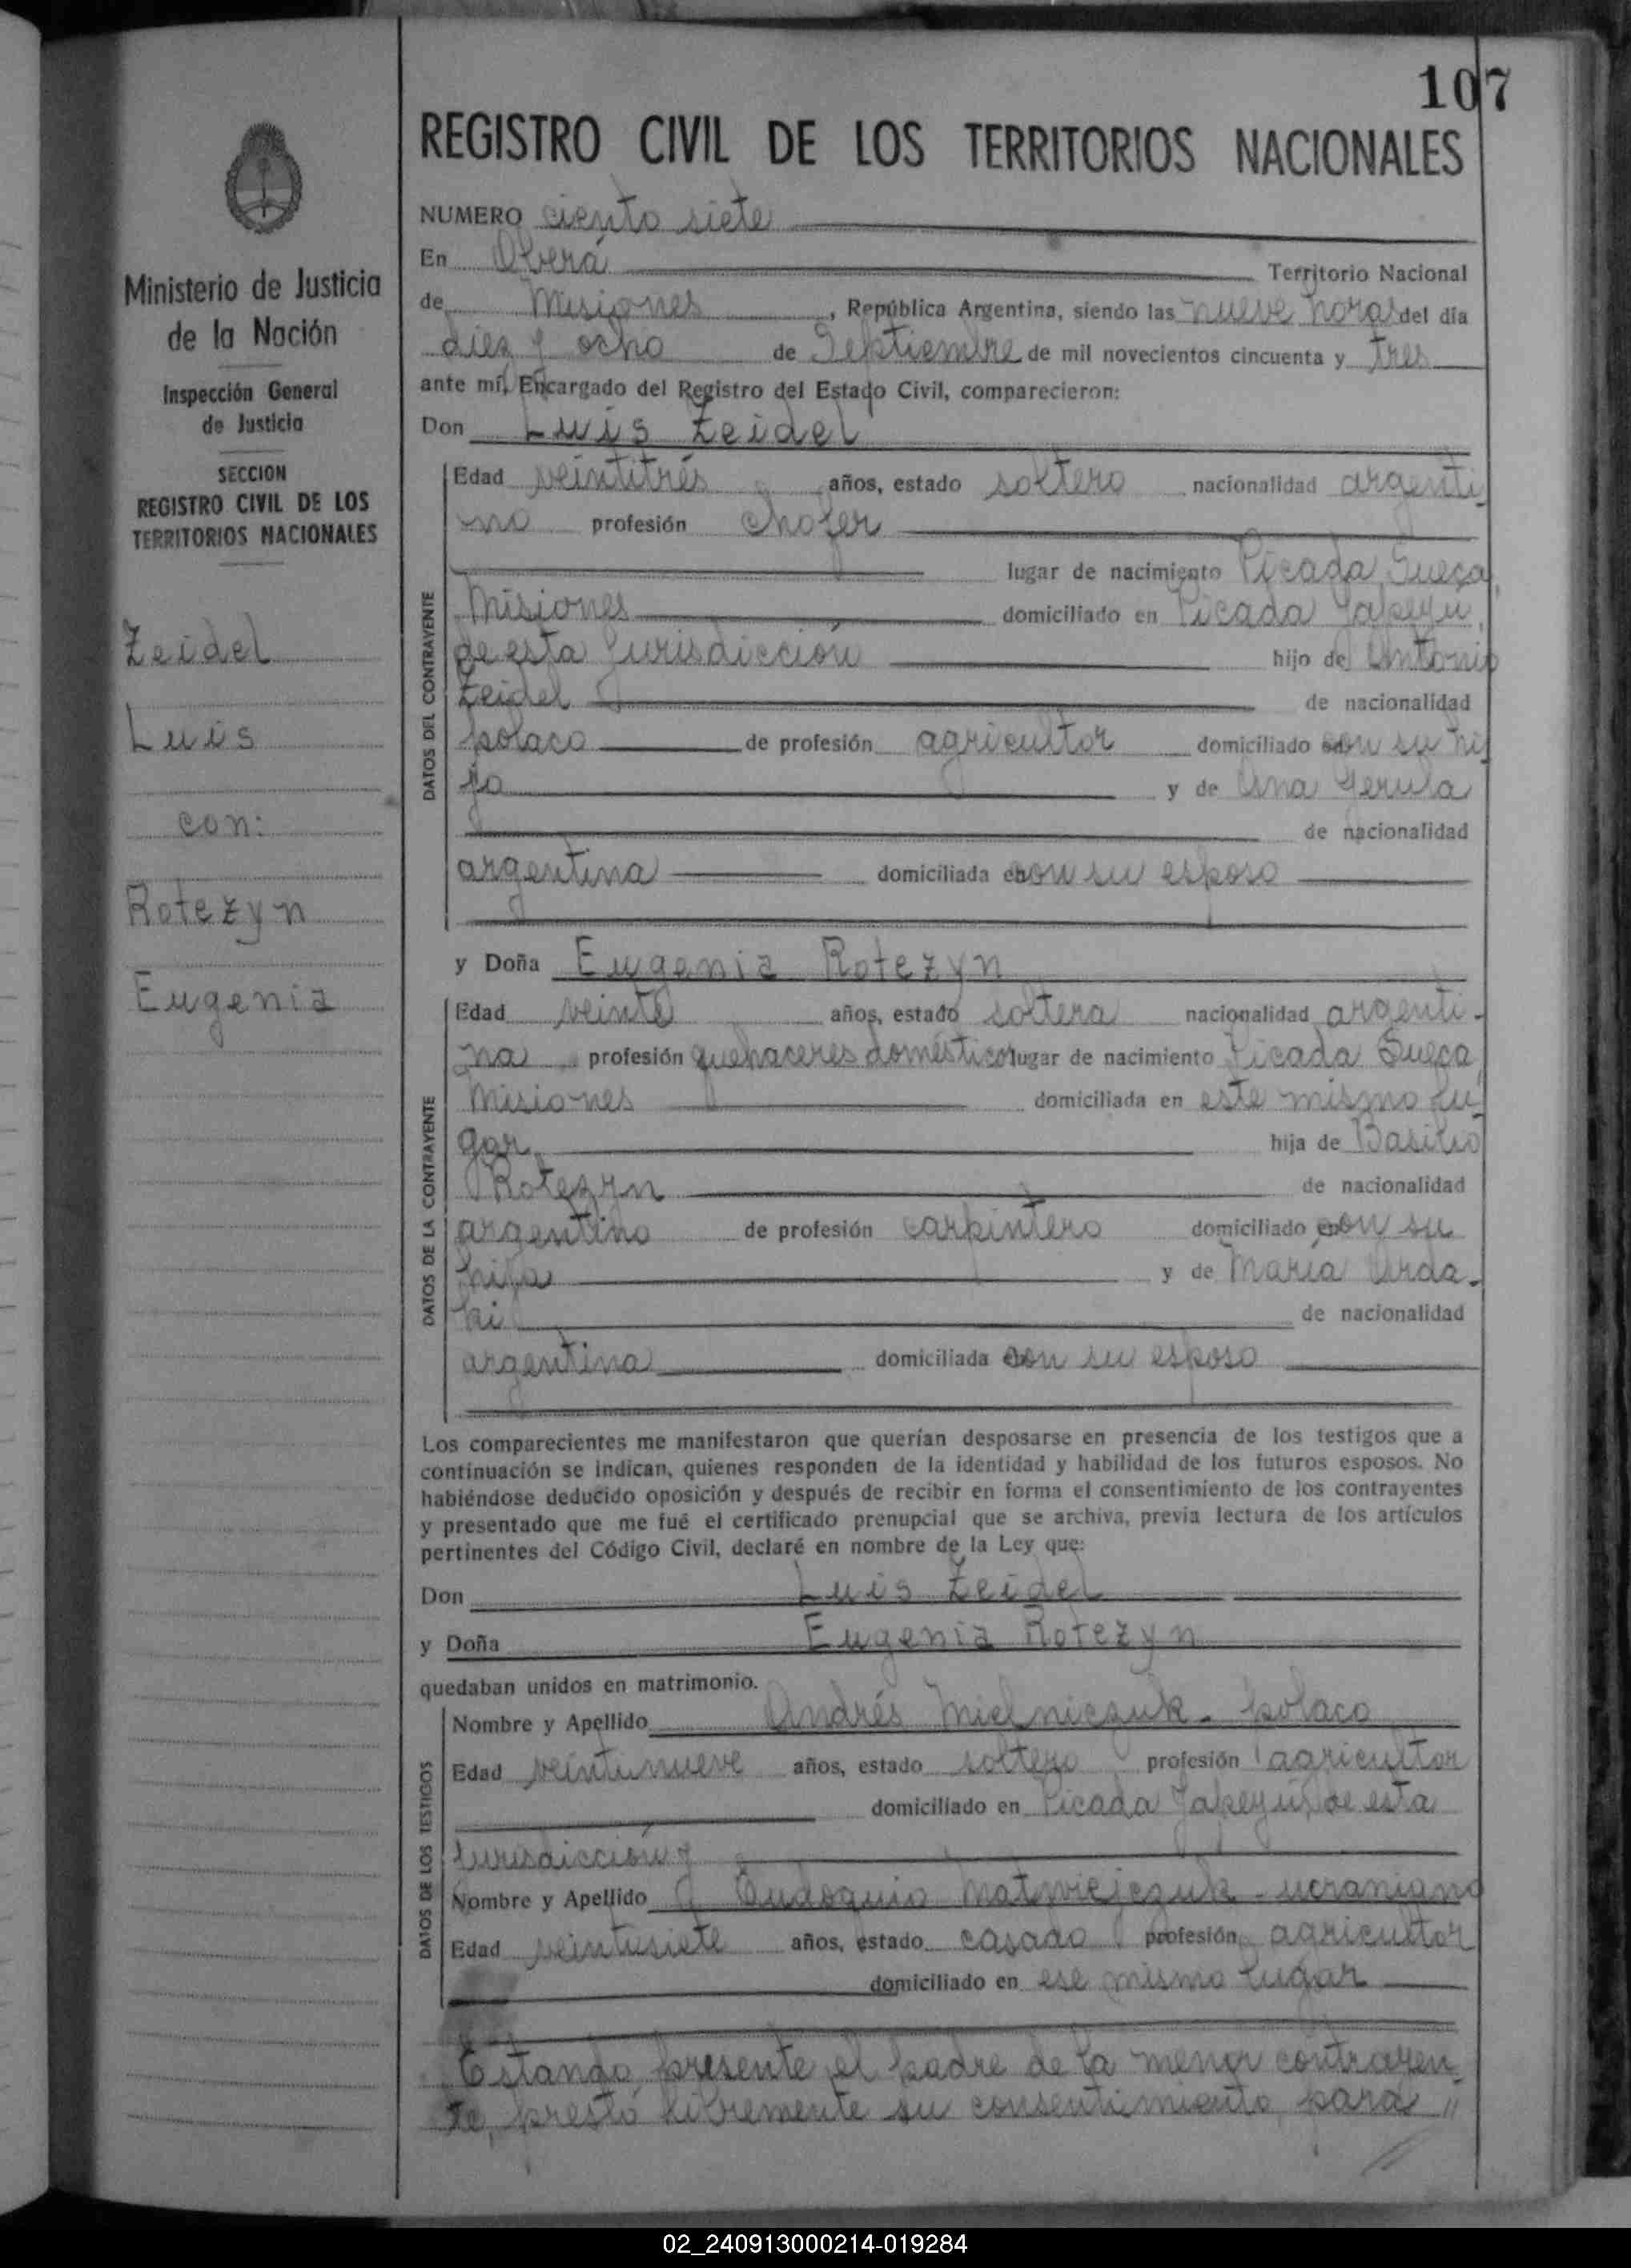 107
REGISTRO CIVIL DE LOS TERRITORIOS NACIONALES
Ministerio de Justicia
de la Nación
Inspección General
de Justicia
SECCION
REGISTRO CIVIL DE LOS
TERRITORIOS NACIONALES
Zeidel
Luis
con:
Rotezyn
Eugenia
NUMERO ciento siete
En Oberá Territorio Nacional
de Misiones, República Argentina, siendo las nueve horas del día
diez y ocho de Septiembre de mil novecientos cincuenta y tres
ante mí, Encargado del Registro del Estado Civil, comparecieron:
Don Luis Zeidel
DATOS DEL CONTRAYENTE
Edad veintitrés años, estado soltero nacionalidad argenti-
no profesión chofer
lugar de nacimiento Picada Sueca,
Misiones domiciliado en Picada Yapeyú,
de esta Jurisdicción hijo de Antonio
Zeidel de nacionalidad
polaco de profesión agricultor domiciliado con su hi-
jo y de Ana Gerula
de nacionalidad
argentina domiciliada con su esposo
y Doña Eugenia Rotezyn
DATOS DE LA CONTRAYENTE
Edad veinte años, estado soltera nacionalidad argenti-
na profesión quehaceres domésticos lugar de nacimiento Picada Sueca,
Misiones domiciliada en este mismo lu-
gar hija de Basilio
Rotezyn de nacionalidad
argentino de profesión carpintero domiciliado con su
hija y de María Urda-
ki de nacionalidad
argentina domiciliada con su esposo
Los comparecientes me manifestaron que querían desposarse en presencia de los testigos que a
continuación se indican, quienes responden de la identidad y habilidad de los futuros esposos. No
habiéndose deducido oposición y después de recibir en forma el consentimiento de los contrayentes
y presentado que me fué el certificado prenupcial que se archiva, previa lectura de los artículos
pertinentes del Código Civil, declaré en nombre de la Ley que:
Don Luis Zeidel
y Doña Eugenia Rotezyn
quedaban unidos en matrimonio.
DATOS DE LOS TESTIGOS
Nombre y Apellido Andrés Mielniczuk - polaco
Edad veintinueve años, estado soltero profesión agricultor
domiciliado en Picada Yapeyú, de esta
Jurisdicción y
Nombre y Apellido Eudoquio Matwiejczuk - ucraniano
Edad veintisiete años, estado casado profesión agricultor
domiciliado en ese mismo lugar
Estando presente el padre de la menor contrayen-
te, prestó libremente su consentimiento para //
02_240913000214-019284